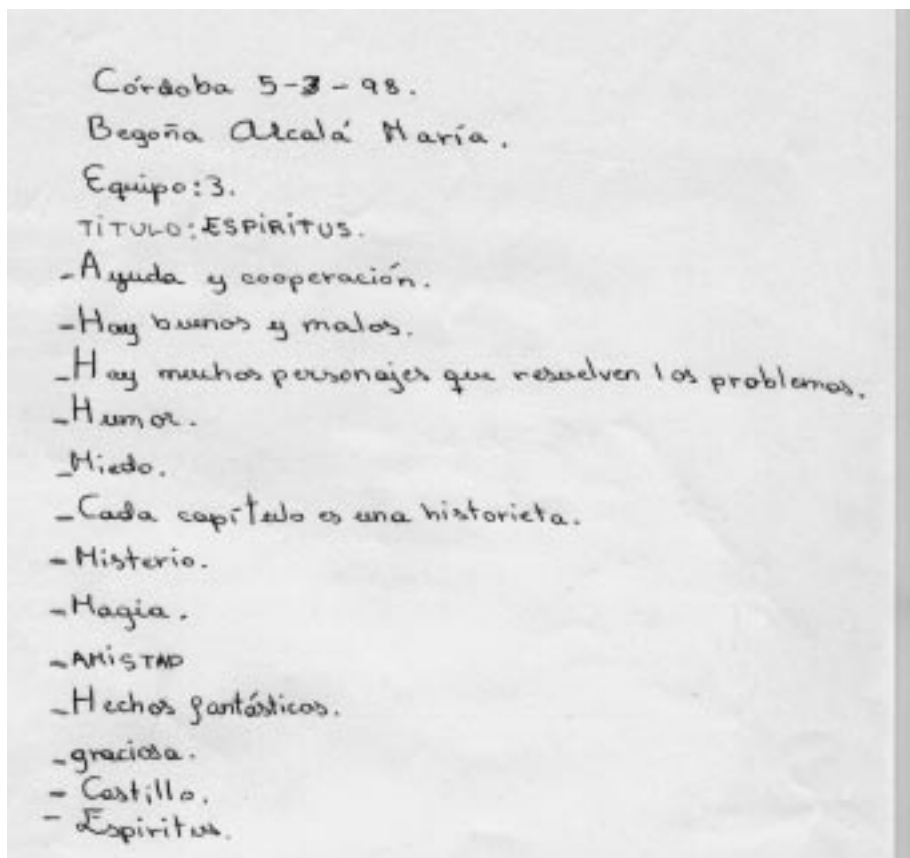 Córdoba 5-3-98.
Begoña Alcalá María.
Equipo:3.
TÍTULO:ESPIRITUS.
-Ayuda y cooperación.
-Hay buenos y malos.
-Hay muchos personajes que resuelven los problemas.
-Humor.
-Miedo.
-Cada capítulo es una historieta.
-Misterio.
-Magia.
-AMISTAD
-Hechos fantásticos.
-graciosa.
-Castillo.
-Espiritus.